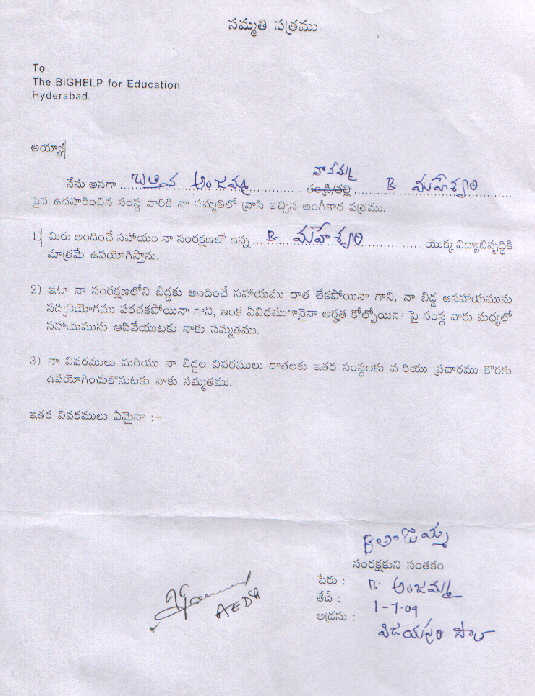 సమ్మతి పత్రము
To
The BIGHELP for Education
Hyderabad.
అయ్యా
నేను అనగా అంజమ్మ B మహేశ్వరి
పైన ఉదహరించిన సంస్థ వారికి నా సమ్మతితో వ్రాసి ఇచ్చిన అంగీకార పత్రము.
1) మీరు అందించే సహాయం నా సంరక్షణలో ఉన్న B. మహేశ్వరి యొక్క విద్యాభివృద్ధికి
మాత్రమే ఉపయోగిస్తాను.
2) ఇటా నా సంరక్షణలోని బిడ్డకు అందించే సహాయము దాత లేకపోయినా గాని, నా బిడ్డ ఆసహాయమును
సద్వినియోగము పరచకపోయినా గాని, ఇంకే వివిధముగానైనా అర్హత కోల్పోయినా పై సంస్థ వారు మధ్యలో
సహాయమును ఆపివేయుటకు నాకు సమ్మతము.
3) నా వివరములు మరియు నా బిడ్డల వివరములు దాతలకు ఇతర సంస్థలకు మరియు ప్రచారము కొరకు
ఉపయోగించుకొనుటకు నాకు సమ్మతము.
ఇతర వివరములు ఏమైనా :-
B అంజమ్మ
సంరక్షకుని సంతకం
పేరు : B. అంజమ్మ
తేదీ : 1-7-09
అడ్రసు : విజయపురి సౌత్